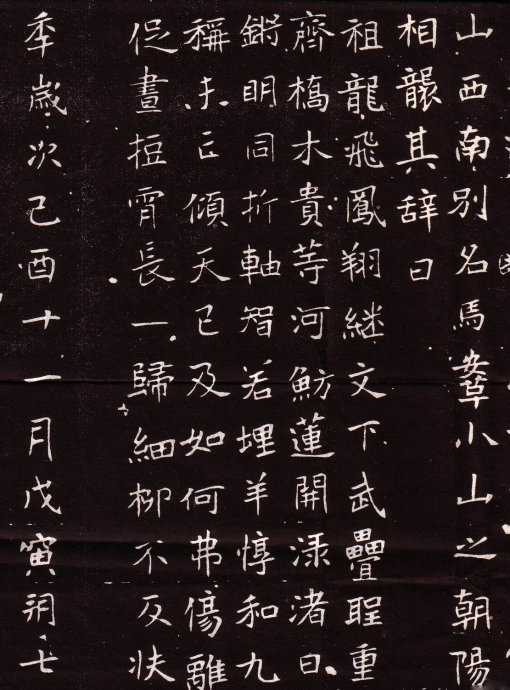 山西南別名馬鞌小山之朝陽
相襲其辞曰
祖龍飛鳳翔継文下武疊聖重
齊槗木貴等河魴蓮開渌渚日
鏘明同折軸智若埋羊惇和九
稱傾天已及如何弗傷離
促晝短宵長一歸細柳不反扶
季歲次己酉十一月戊寅朔七